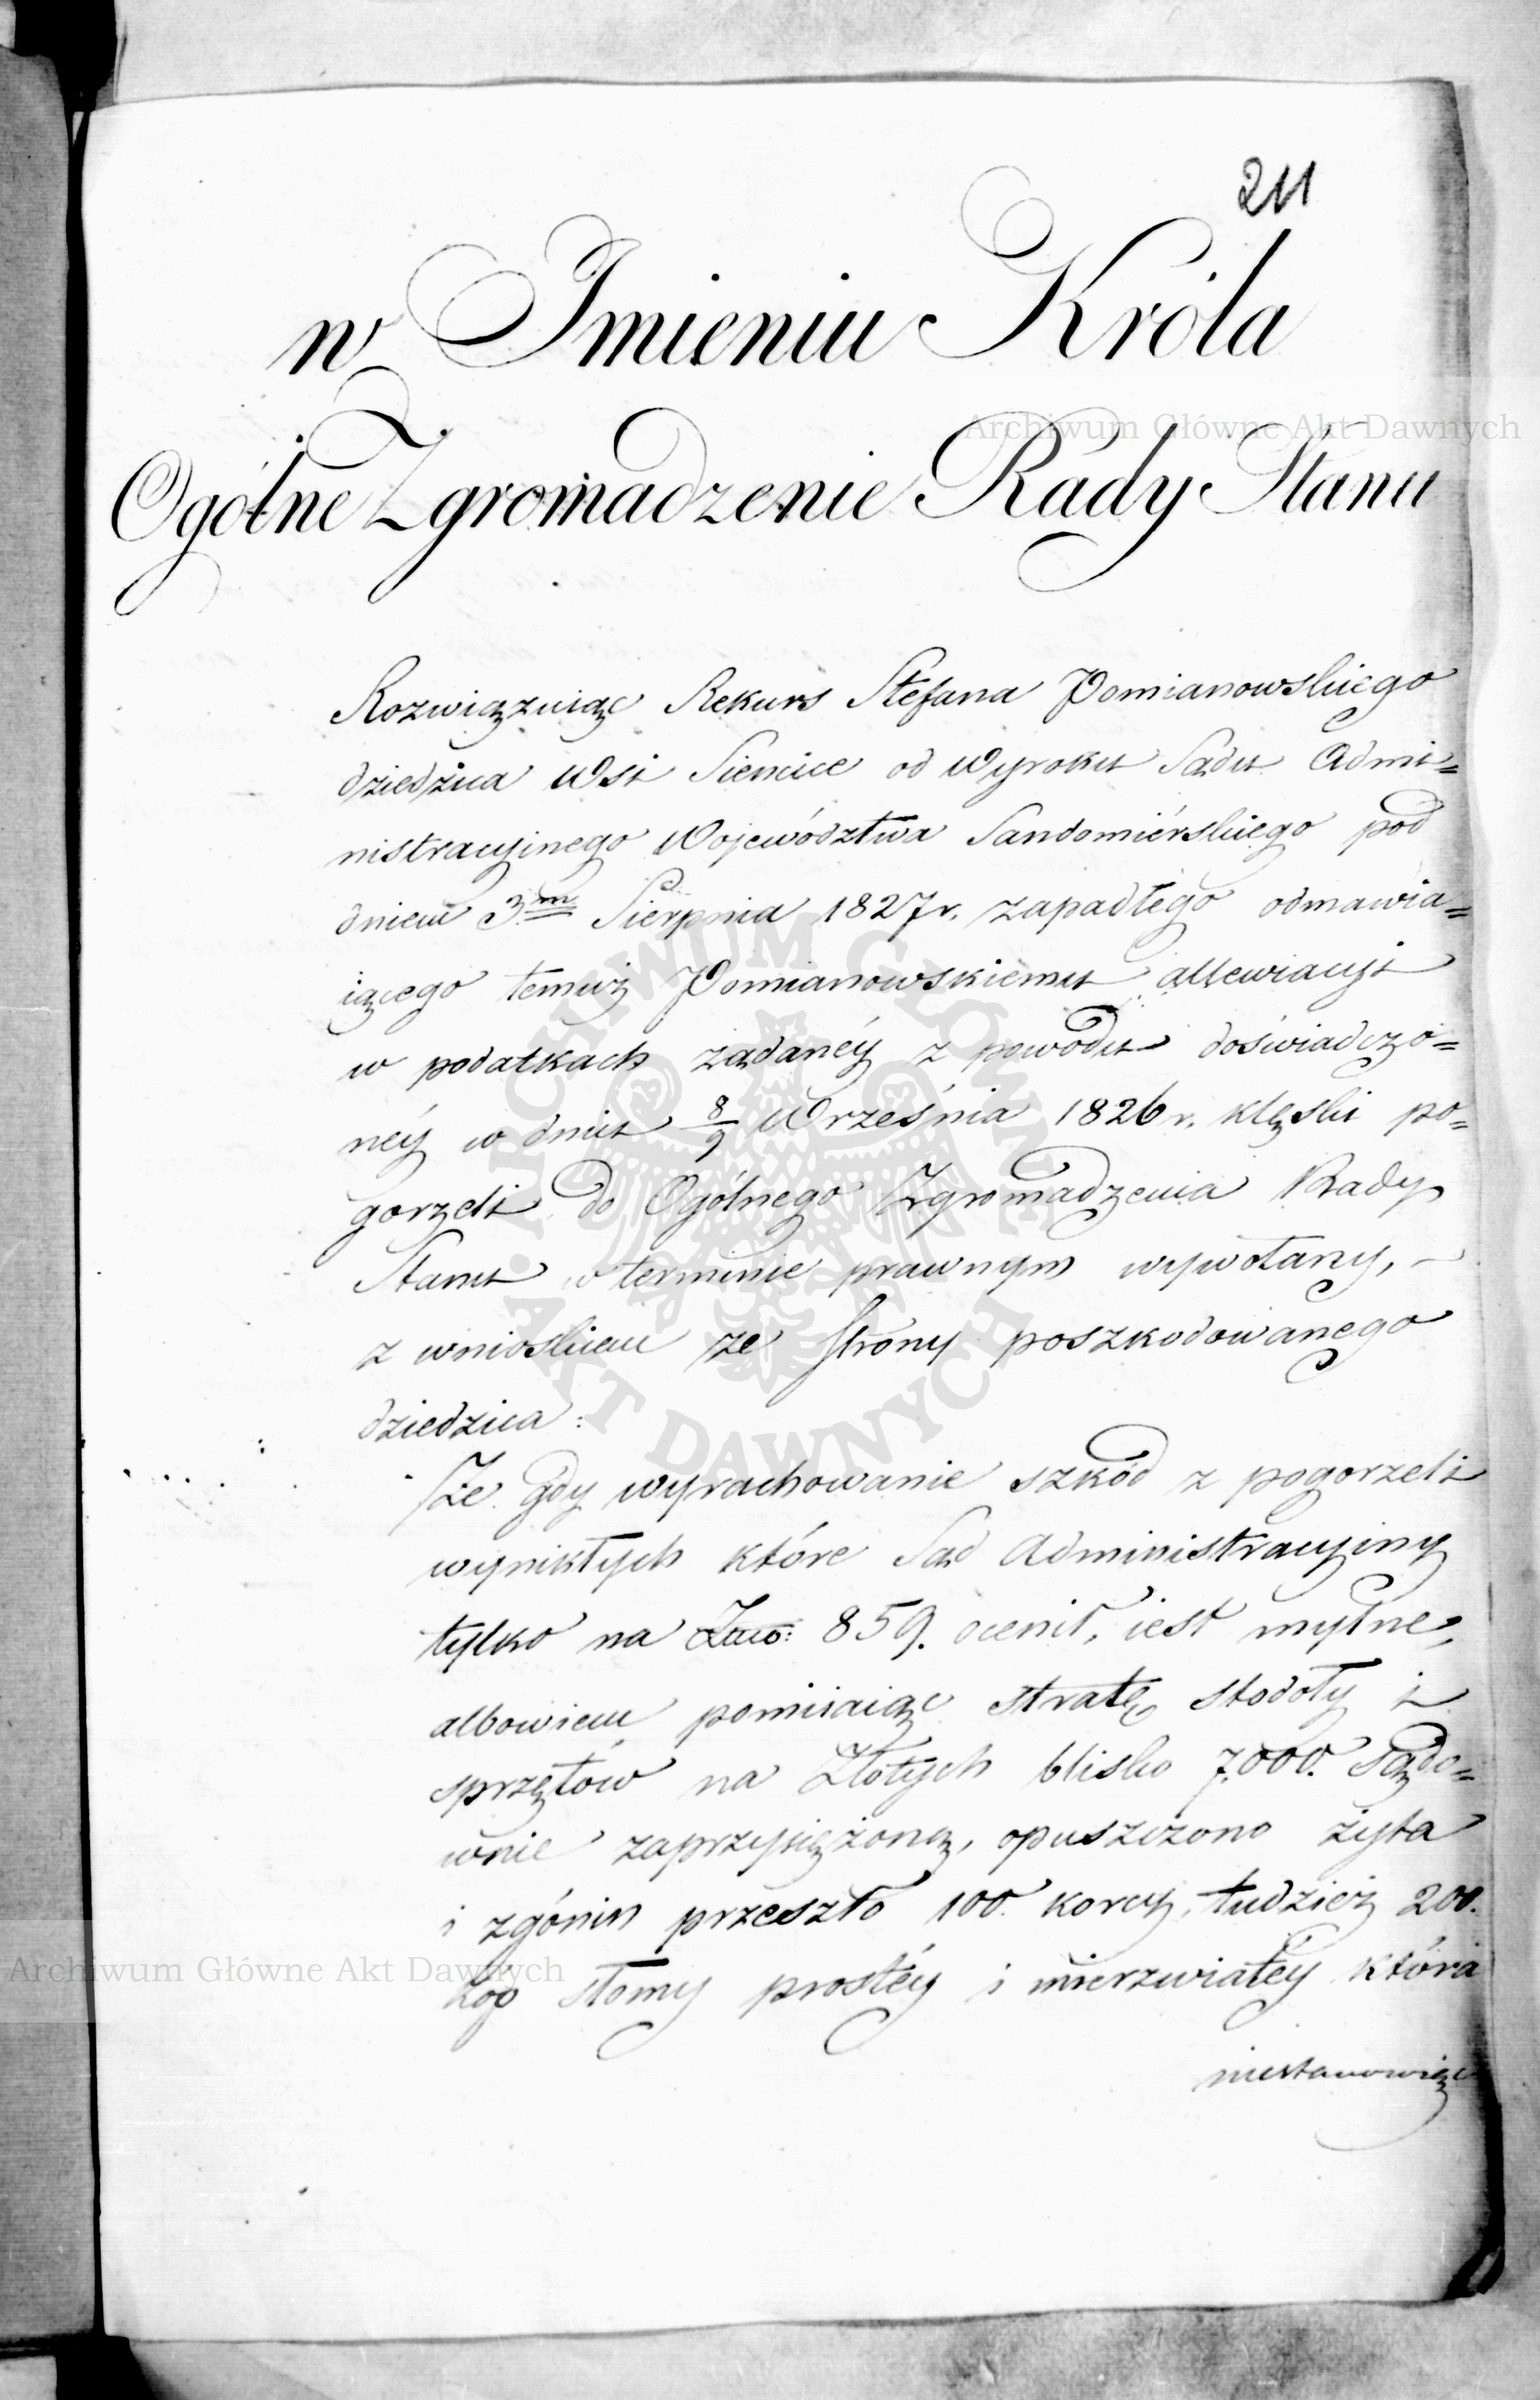 211
w Imieniu Króla
Ogólne Zgromadzenie Rady Stanu
Archiwum Główne Akt Dawnych
Rozwiązuiąc Rekurs Stefana Pomianowskiego
dziedzica Wsi Siencice od Wyroku Sądu Admi=
nistracyjnego Województwa Sandomiérskiego pod
dniem 3m Sierpnia 1827 r. zapadłego odmawia=
iącego temuż Pomianowskiemu allewiacyi
w podatkach żądanéy z powodu doświadczo=
néy w dniu 8/9 Września 1826 r. klęski po=
gorzeli do Ogólnego Zgromadzenia Rady
Stanu w terminie prawnym wywołany, —
z wnioskiem ze strony poszkodowanego
dziedzica:
Że gdy wyrachowanie szkód z pogorzeli
wynikłych które Sąd Administracyjny
tylko na 859. ocenił, iest mylne,
albowiem pomiiaiąc stratę stodoły i
sprzętów na Złotych blisko 7,000. sądo=
wnie zaprzysiężoną, opuszczono żyta
i zgónin przeszło 100. korcy, tudzież 200.
kop słomy prostéy i mierzwiatéy która
niestanowiąc
ARCHIWUM GŁÓWNE AKT DAWNYCH
Archiwum Główne Akt Dawnych